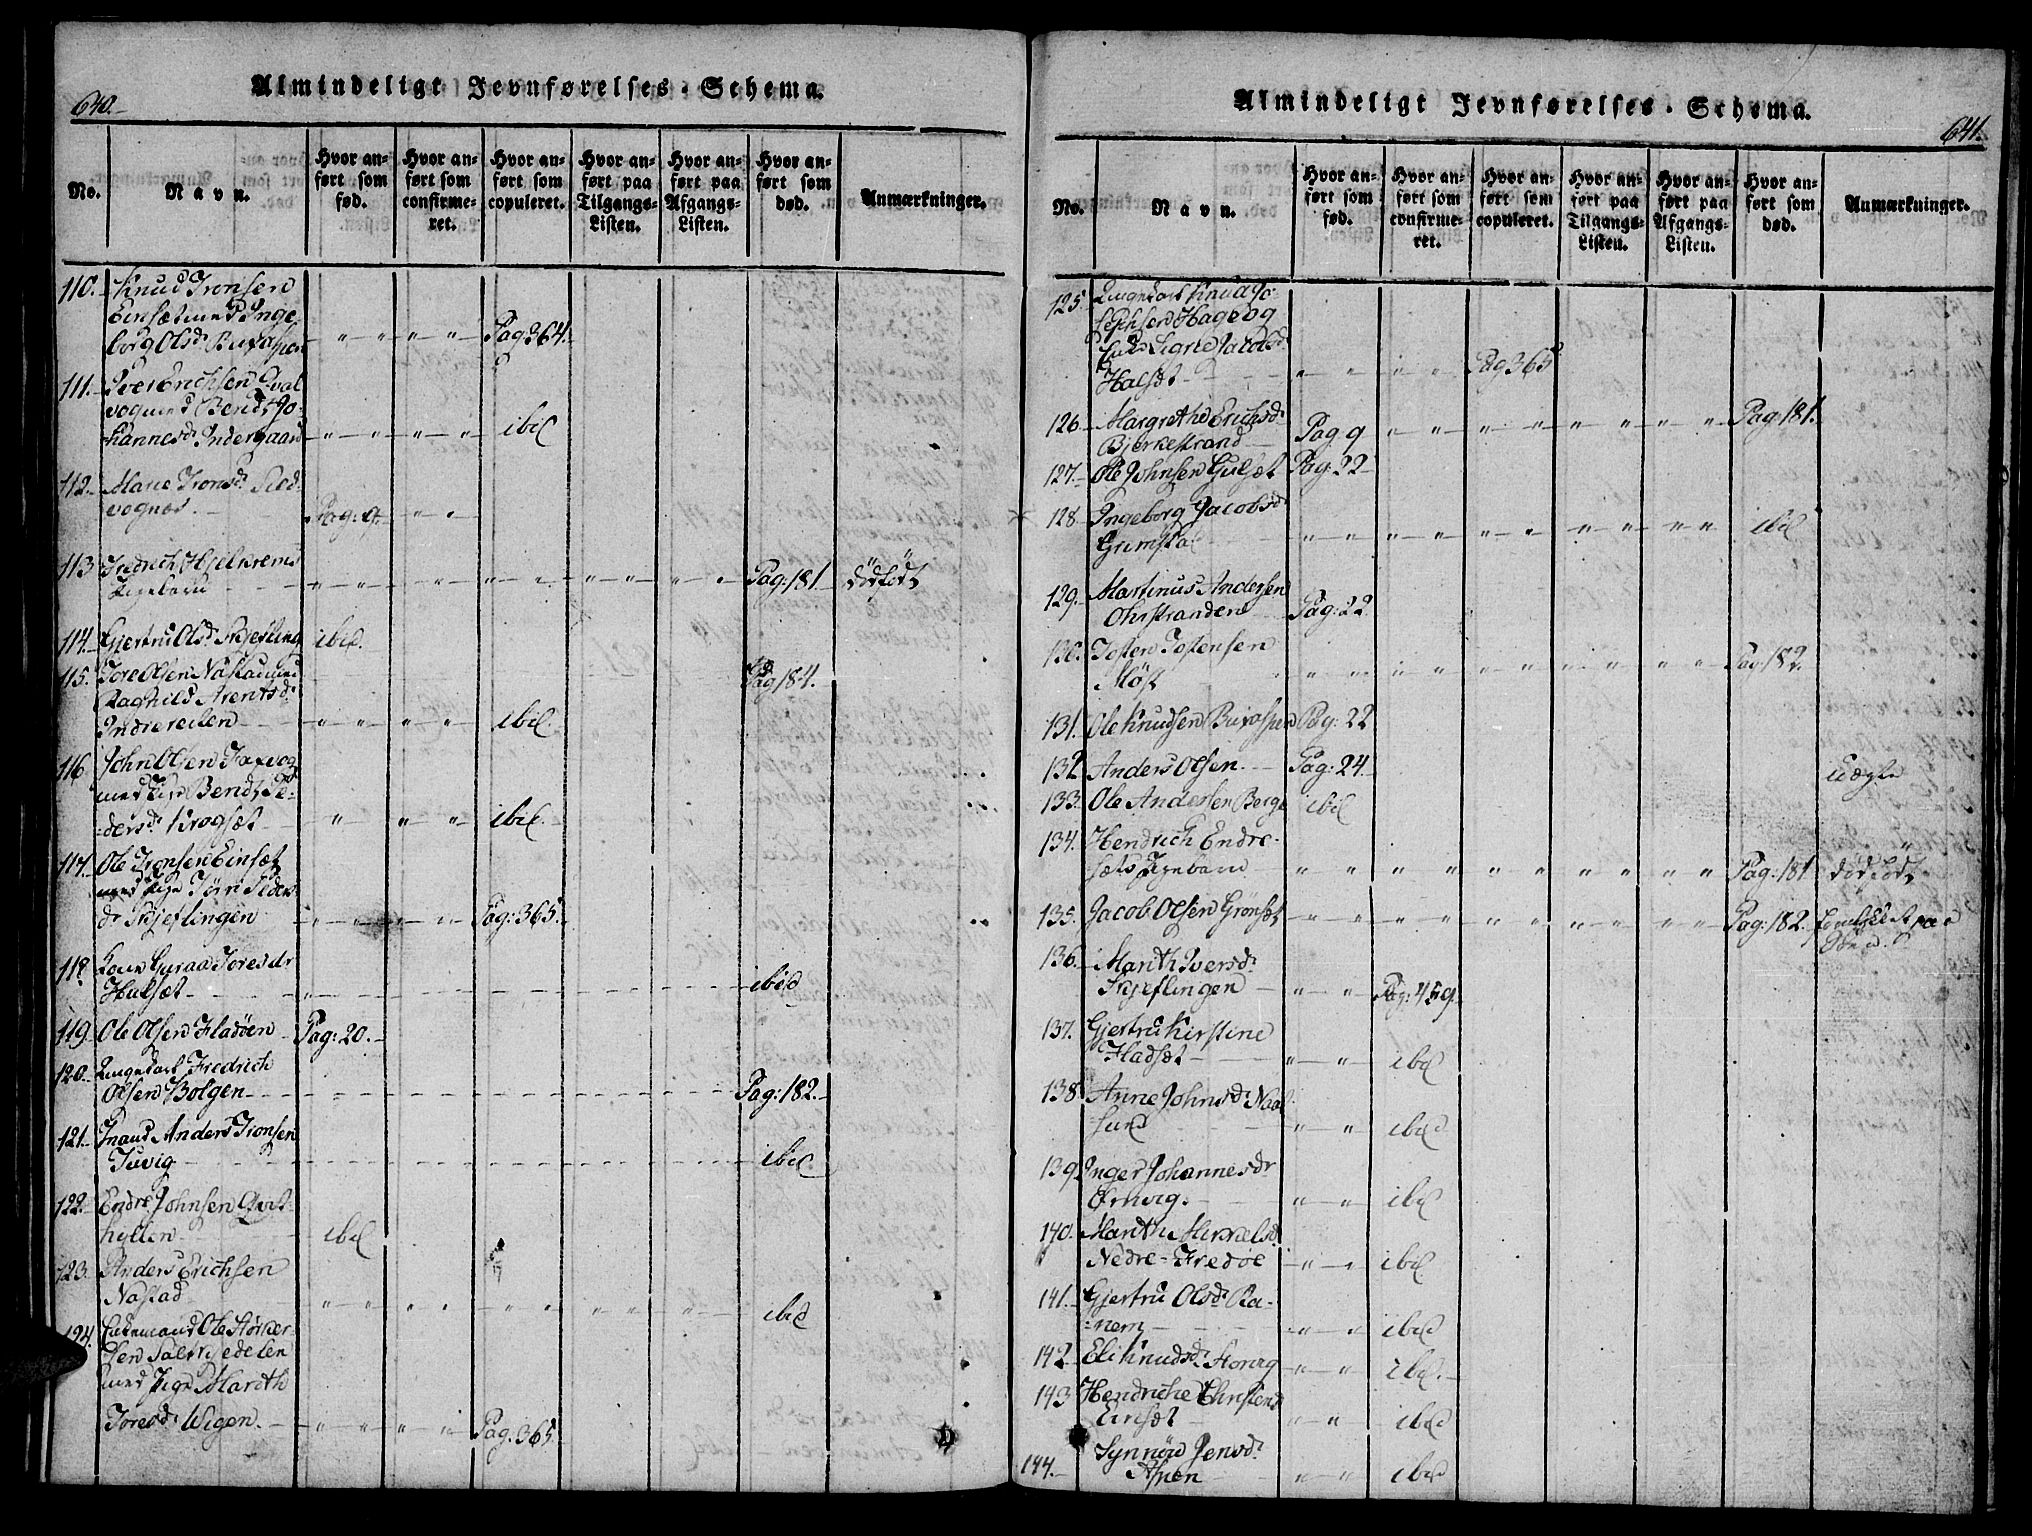 640.
Almindeligt Jevnførelses-Schema.
No.
Navn.
Hvor anført som fød.
Hvor anført som confirmeret.
Hvor anført som copuleret.
Hvor anført paa Tilgangs-Listen.
Hvor anført paa Afgangs-Listen.
Hvor anført som død.
Anmærkninger.
110. Knud Tronsen
Einsæt med Inge-
borg Olsdr
Pag 364.
111. Iver Erichsen
vog med Berit Jo-
hannesdr Indergaard ibid
112. Marie Tronsdr
vognes Pag: 9.
113 Fredrich Hjelkrems
Pigebarn Pag: 181 dödfödt
114. Gjertru Olsdr Skjefling ibid.
115. Tore Olsen Nastad med Pag 184.
Raghild Arentsdr
Indreeiden ibid.
116 John Olsen
med Pige Berit Pe-
dersdr Krogsæt ibid.
117. Ole Tronsen Einsæt
med Pige Peders
dr Skjeflingen Pag: 365.
118 Kone Guraa Toresdr
Hulsæt ibid
119. Ole Olsen Fladöen Pag: 20.
120. Ungkarl Fredrich
Olsen Bolgen Pag: 182.
121. Anders Tronsen
Tuvig ibid.
122. Endre Johnsen Qvit-
hyllen ibid
123. Anders Erichsen
Nastad ibid
124. Enkemand Ole Størker-
sen
med Pige Marith
Toresdr Wigen. Pag. 365.
Almindeligt Jevnførelses-Schema.
641.
No.
Navn.
Hvor anført som fød.
Hvor anført som confirmeret.
Hvor anført som copuleret.
Hvor anført paa Tilgangs-Listen.
Hvor anført paa Afgangs-Listen.
Hvor anført som død.
Anmærkninger.
125. Ungkarl Knud Jo-
sephsen Hage og
Enke Sigrie Jacobsdr
Halsæt Pag 365
126. Margrethe Erichsdr
Bjerkestrand Pag 9 Pag: 181.
127. Ole Johnsen Gulsæt Pag: 22
128. Ingeborg Jacobsdr
Grimstad ibid
129. Martinus Andersen
Ohrstranden Pag: 22
130. Tosten Tostensen
Möst Pag: 182.
131. Ole Knudsen Pag: 22
132 Anders Olsen Pag: 24. uægte
133. Ole Andersen Berge ibid
134. Hendrich Endre-
sæts Pigebarn Pag: 181 dödfödt
135. Jacob Olsen Grönsæt Pag: 182. paa
136. Marith Iversdr
Skjeflingen Pag: 459.
137. Gjertru Kirstine
Fladsæt ibid
138 Anne Johnsdr Naas-
sund ibid
139 Inger Johannesdr
Ormvig. ibid
140. Marith Mikkelsdr
Nedre-Fredöe ibid
141. Gjertru Olsdr Ra-
nem ibid
142 Eli Knudsdr Storvig ibid.
143 Hendriche Christensd
Einsæt ibid
144. Synnöv Jensdr
Aspen ibid